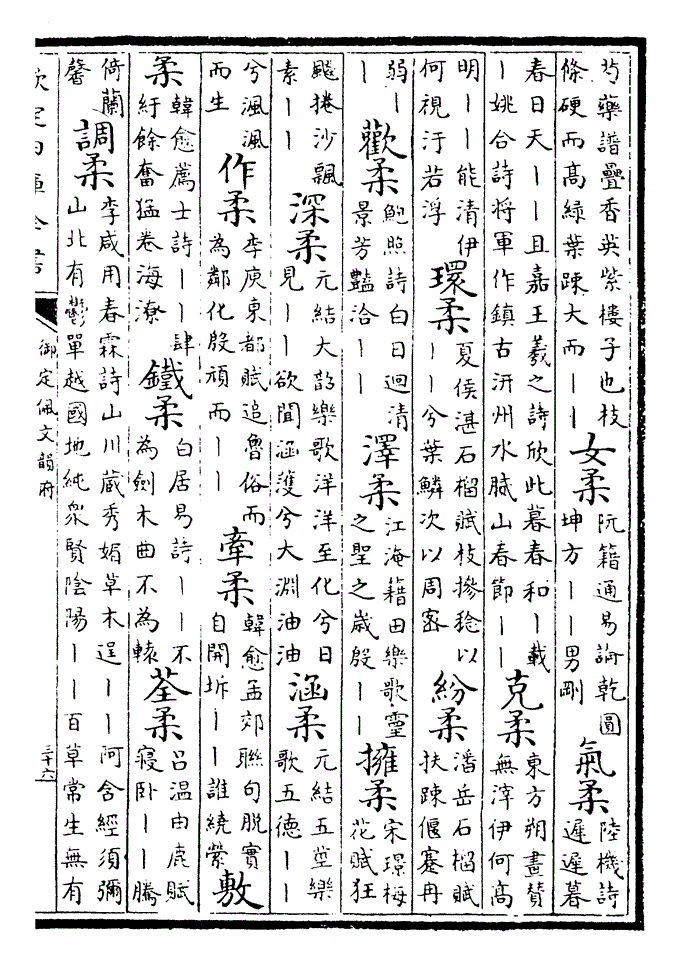 芍藥譜疊香英紫樓子也枝
條硬而高綠葉踈大而丨丨
女柔
阮籍通易論乾圓
坤方丨丨男剛
氣柔
陸機詩
遲遲暮
春日天丨丨且嘉王羲之詩欣此暮春和丨載
丨姚合詩將軍作鎮古汧州水膩山春節丨丨
克柔
東方朔畫贊
無滓伊何高
明丨丨能清伊
何視汙若浮
環柔
夏侯湛石榴賦枝摻稔以
丨丨兮葉鱗次以周密
紛柔
潘岳石榴賦
扶踈偃蹇冉
弱丨
丨
歡柔
鮑照詩白日迴清
景芳豔洽丨丨
澤柔
江淹籍田樂歌靈
之聖之歲殷丨丨
擁柔
宋璟梅
花賦狂
飈捲沙飄
素丨丨
深柔
元結大韶樂歌洋洋至化兮日
見丨丨欲聞涵濩兮大淵油油
涵柔
元結五莖樂
歌五德丨丨
兮渢渢
而生
作柔
李庾東都賦追魯俗而
為鄰化殷頑而丨丨
牽柔
韓愈孟郊聯句脫實
自開坼丨丨誰繞縈
敷
柔
韓愈薦士詩丨丨肆
紆餘奮猛卷海潦
鐵柔
白居易詩丨丨不
為劍木曲不為轅
荃柔
呂温由鹿賦
寢卧丨丨騰
倚蘭
馨
調柔
李咸用春霖詩山川藏秀媚草木逞丨丨阿含經須彌
山北有鬱單越國地純衆賢陰陽丨丨百草常生無有
欽定四庫全書
御定佩文韻府
三十六